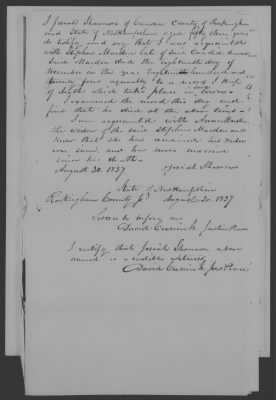 I Josiah Shannon of Candia County of Rockingham
and State of New Hampshire aged fifty three years
do testify and say that I was acquainted
with Stephen Marden late of said Candia deceased
Said Marden died the eighteenth day of
November in the year Eighteen hundred and
twenty four agreeably to a record I kept
of deaths which took place in
I examined the record this day and
find that he died at the above time
I am acquainted with Anna Marden
the widow of the said Stephen Marden and
know that she has remained his widow
ever since and has never married
since his death.
August 30. 1837 Josiah Shannon
State of New Hampshire
Rockingham County August 30. 1837
Sworn to before me
David Currier Jr. Justice Peace
I certify that Josiah Shannon above
named is a credible witness
David Currier Jr. Jus Peace